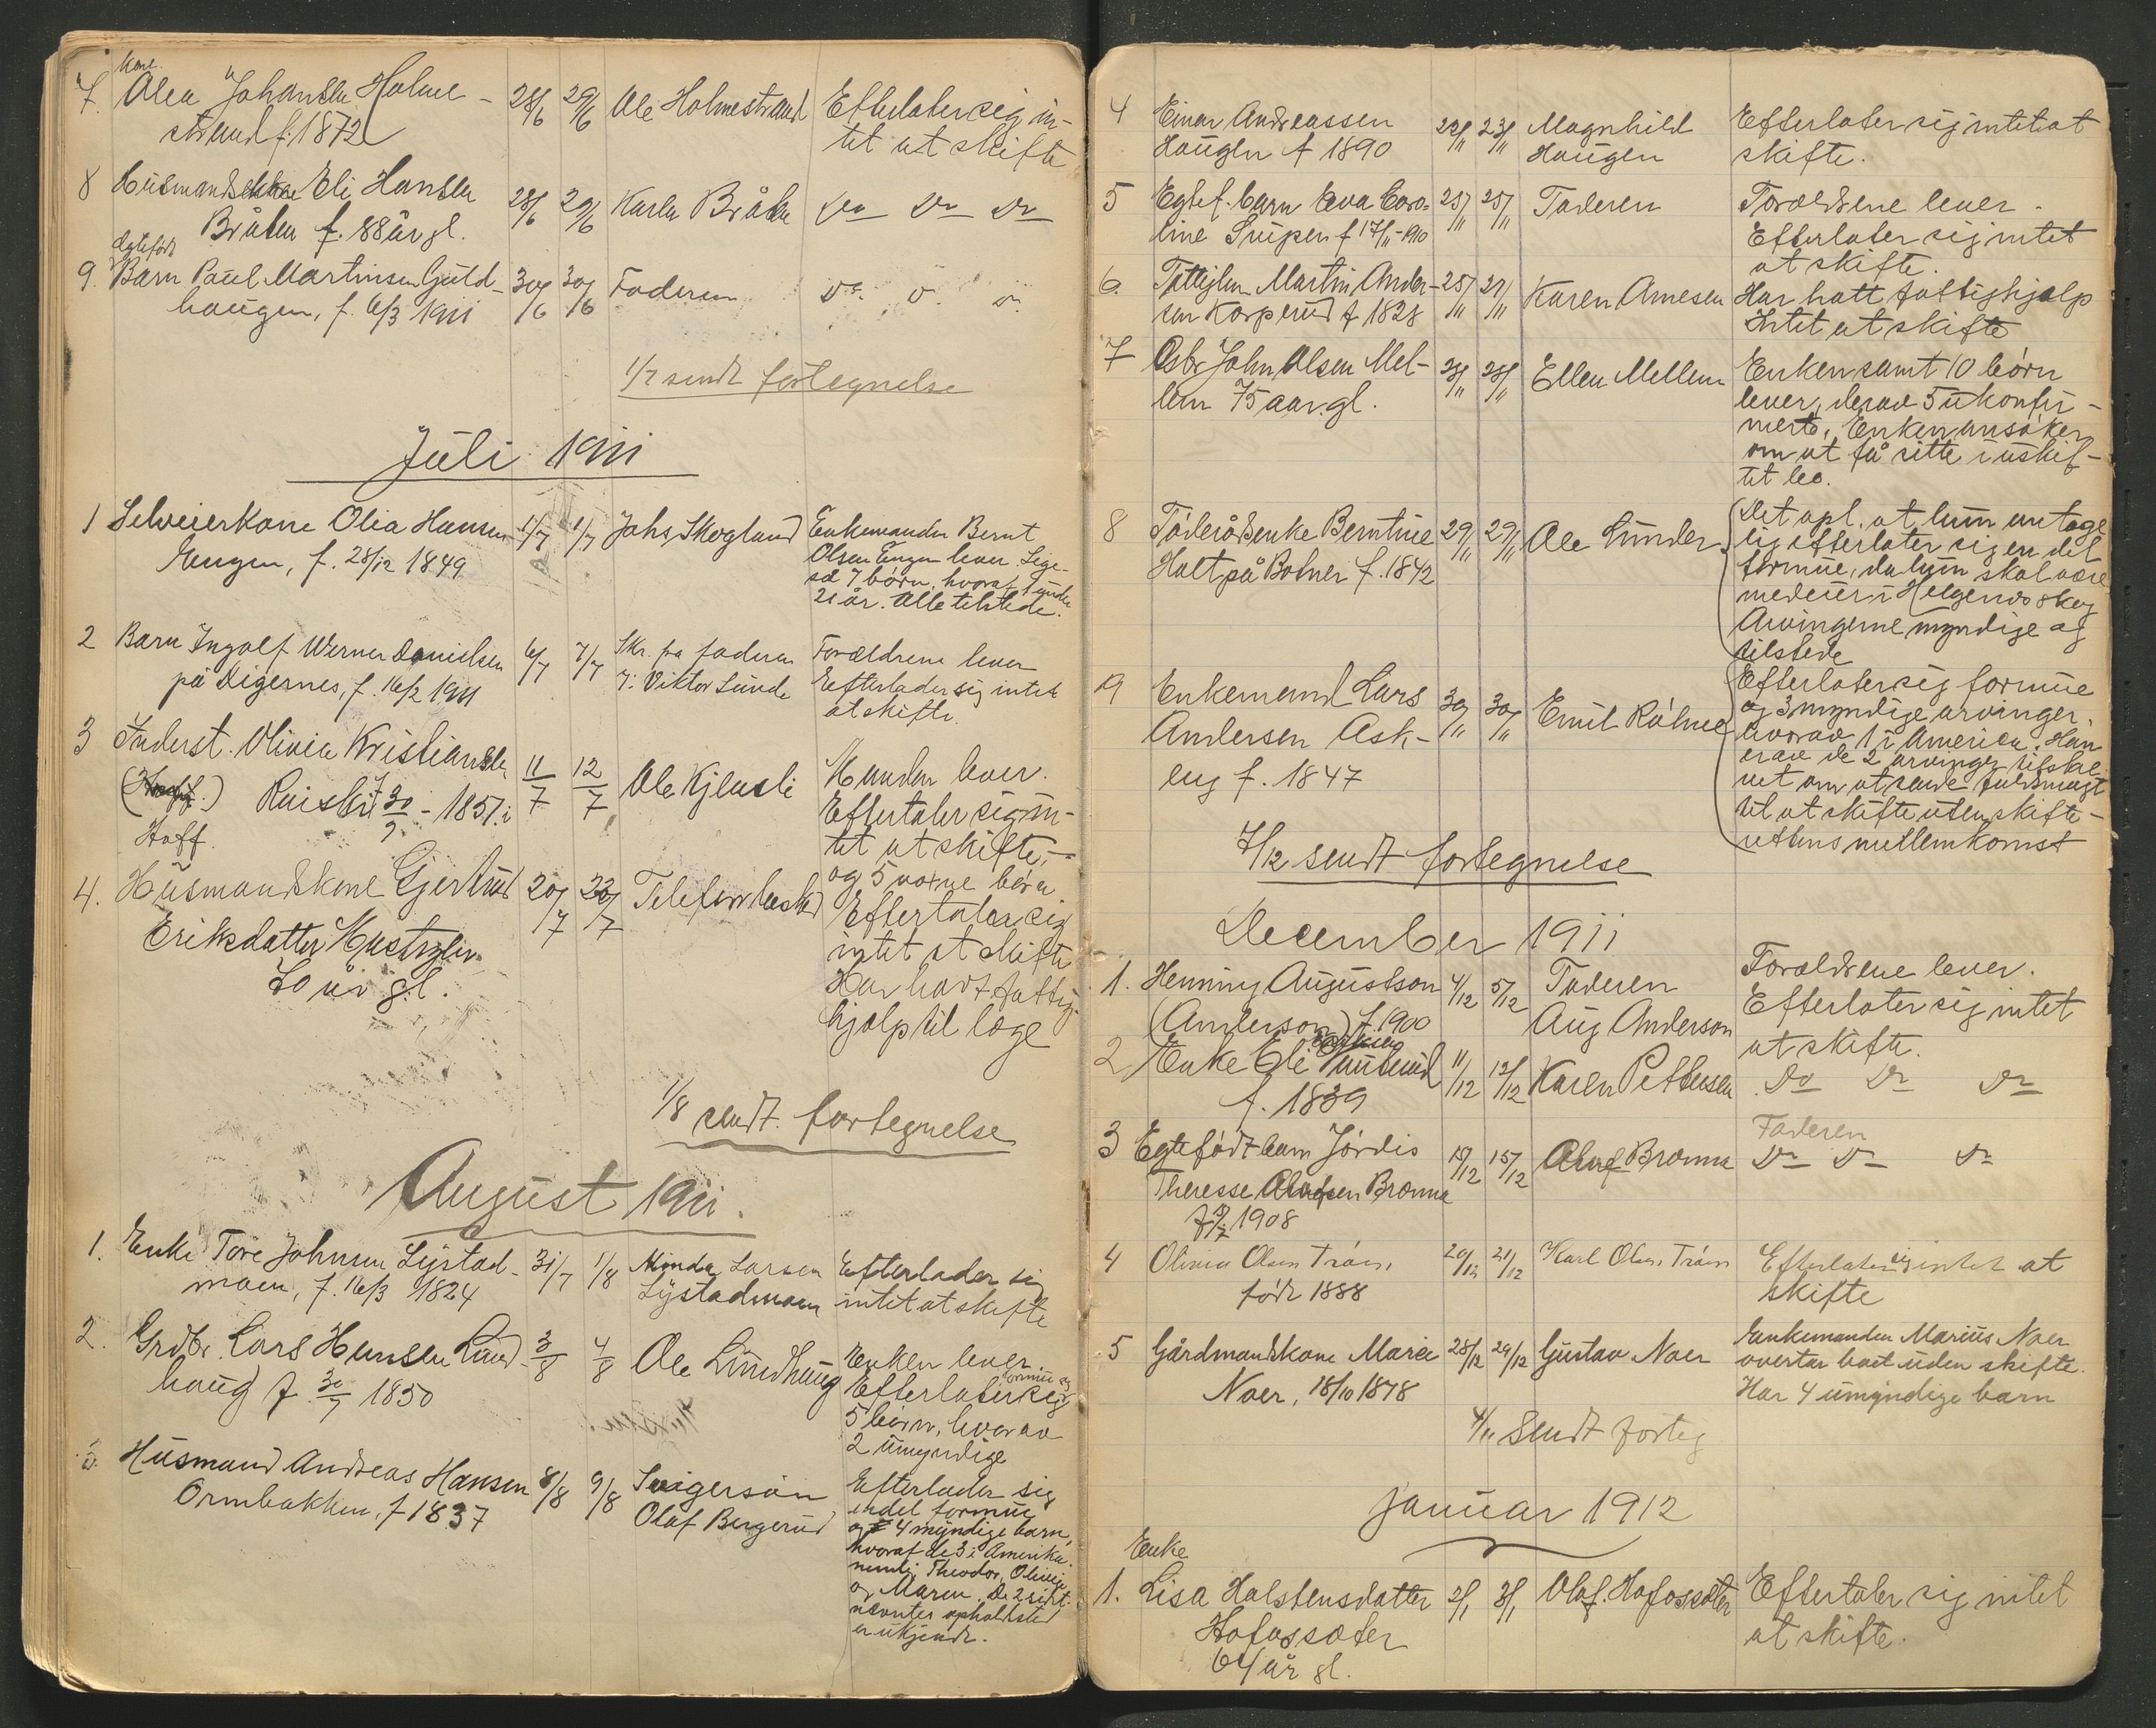 Kone
7. Olea Johansen Holme- 28/6 29/6 Ole Holmestrand Efterlater sig in-
strand f. 1872 tet at skifte
8 Husmandsenke Eli Hansen 28/6 29/6 Karla Bråten do do do
Bråten f. 88 år gl.
Egtefødt
9. Barn Paul Martinsen Guld- 30/6 30/6 Faderen do. do. do.
haugen, f. 6/3 1911
1/7 sendt fortegnelse
Juli 1911
1 Selveierkone Olia Hansen 1/7 1/7 Johs. Skogland Enkemanden Bernt
Engen, f. 28/12 1849 Olsen Engen lever. Lige-
så 7 børn, hvoraf 1 under
21 år. Alle tilstede.
2 Barn Ingolf Werner Danielsen 6/7 7/7 Skr. fra faderen Forældrene lever
på Digernes, f. 16/2 1911 v. Viktor Sunde Efterlader sig intet
at skifte.
3 Inderst. Olivia Kristiansen 11/7 12/7 Ole Kjensli Manden lever.
Raislit 30/9 - 1851 i Efterlater sig in-
Hoff. tet at skifte,-
og 5 voxne børn
4. Husmandskone Gjertrud 20/7 22/7 Telefonbesked Efterlater sig
Eriksdatter intet at skifte
år gl. Har havt fattig-
hjælp til læge
1/8 sendt. fortegnelse
August 1911.
1. Enke Tore Johnsen Lystad- 31/7 1/8 Minda Larsen Efterlader sig
moen, f. 16/3 1824 Lystadmoen intet at skifte
2. Grdbr. Lars Hansen Lund- 3/8 4/8 Ole Lundhaug Enken lever.
haug f. 30/7 1850 Efterlater sig formue og
5 børn, hvorav
2 umyndige
3. Husmand Andreas Hansen 8/8 9/8 Svigersøn Efterlader sig
Ormbakken, f 1837 Olaf Bergerud endel formue
og 4 myndige barn,
hvoraf de 3 i Amerika.
nemlig Theodor, Olivia
og Maren. De 2 sidst-
nævntes opholdsted
er ukjendt.
4 Einar Andreassen 22/11 23/11 Magnhild Efterlater sig intet at
Haugen f 1890 Haugen skifte.
5 Egtef. barn Eva Caro- 25/11 25/11 Faderen Forældrene lever.
line f 17/11-1910 Efterlater sig intet
at skifte.
6. Fattiglem Martin Ander- 25/11 27/11 Karen Arnesen Har hatt fattighjælp
sen Korperud f 1828 Intet at skifte
7 Gsbr. John Olsen Mel- 28/11 28/11 Ellen Mellem Enken samt 10 børn
lem 75 aar. gl. lever, derav 5 ukonfir-
merte. Enken ansøker
om at få sitte i uskif-
tet bo.
8 Føderådsenke Berntine 29/11 29/11 Ole Sünder. Det opl. at hun antage-
Holt på Botner f. 1842 lig efterlater sig en del
formue, da hun skal være
medeier i Helgerud skog
Arvingerne myndige og
tilstede
9 Enkemand Lars 30/11 30/11 Emil Råhne Efterlater sig formue
Andersen Ask- og 3 myndige arvinger,
eng f. 1847 hvorav 1 i America. Han
er av de 2 arvinger tilskre-
vet om at sende fuldmagt
til at skifte uten skifte-
rettens mellemkomst
7/12 sendt fortegnelse
December 1911
1. Henning Augustson 4/12 5/12 Faderen Forældrene lever.
(Anderson) f. 1900 Aug Anderson Efterlater sig intet
at skifte.
2 Enke Eli 11/12 12/12 Karen Pettersen Do Do Do
f. 1839
3 Egtefødt barn Jórdis 15/12 15/12 Olaf Brænna Faderen
Therese Olafsen Brænna Do Do Do
1908
4 Olivia Olsen Tråen, 20/12 21/12 Karl Olsen Tråen Efterlater sig intet at
född 1888 skifte
5 Gårdmandskone Marie 28/12 29/12 Gustav Noer Enkemanden Marius Noer
Noer, 18/10 1878 overtar boet uden skifte.
Har 4 umyndige barn
4/11 Sendt forteg
Januar 1912
Enke
1. Lisa Halstensdatter 2/1 3/1 Olaf. Hofossæter Efterlater sig intet
Hofossæter at skifte.
64 år gl.